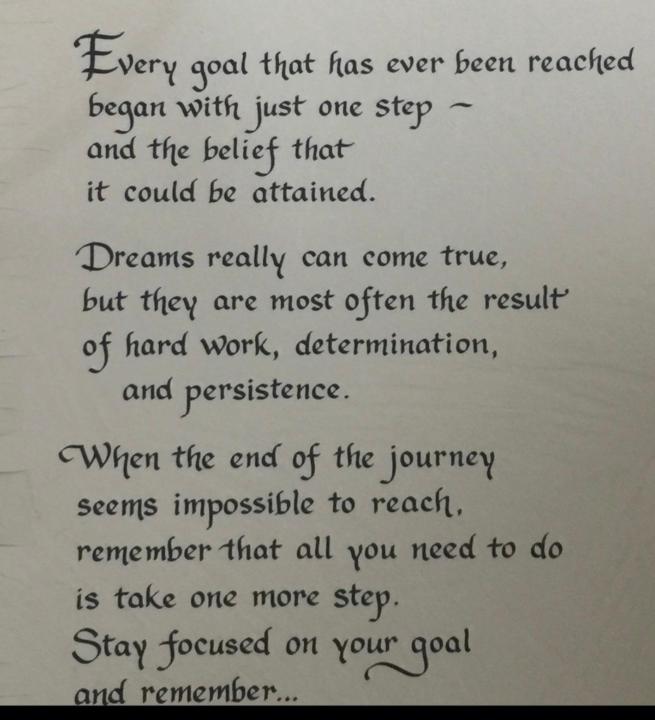 Every goal that has ever been reached
began with just one step ~
and the belief that
it could be attained.
Dreams really can come true,
but they are most often the result
of hard work, determination,
and persistence.
When the end of the journey
seems impossible to reach,
remember that all you need to do
is take one more step.
Stay focused on your goal
and remember...